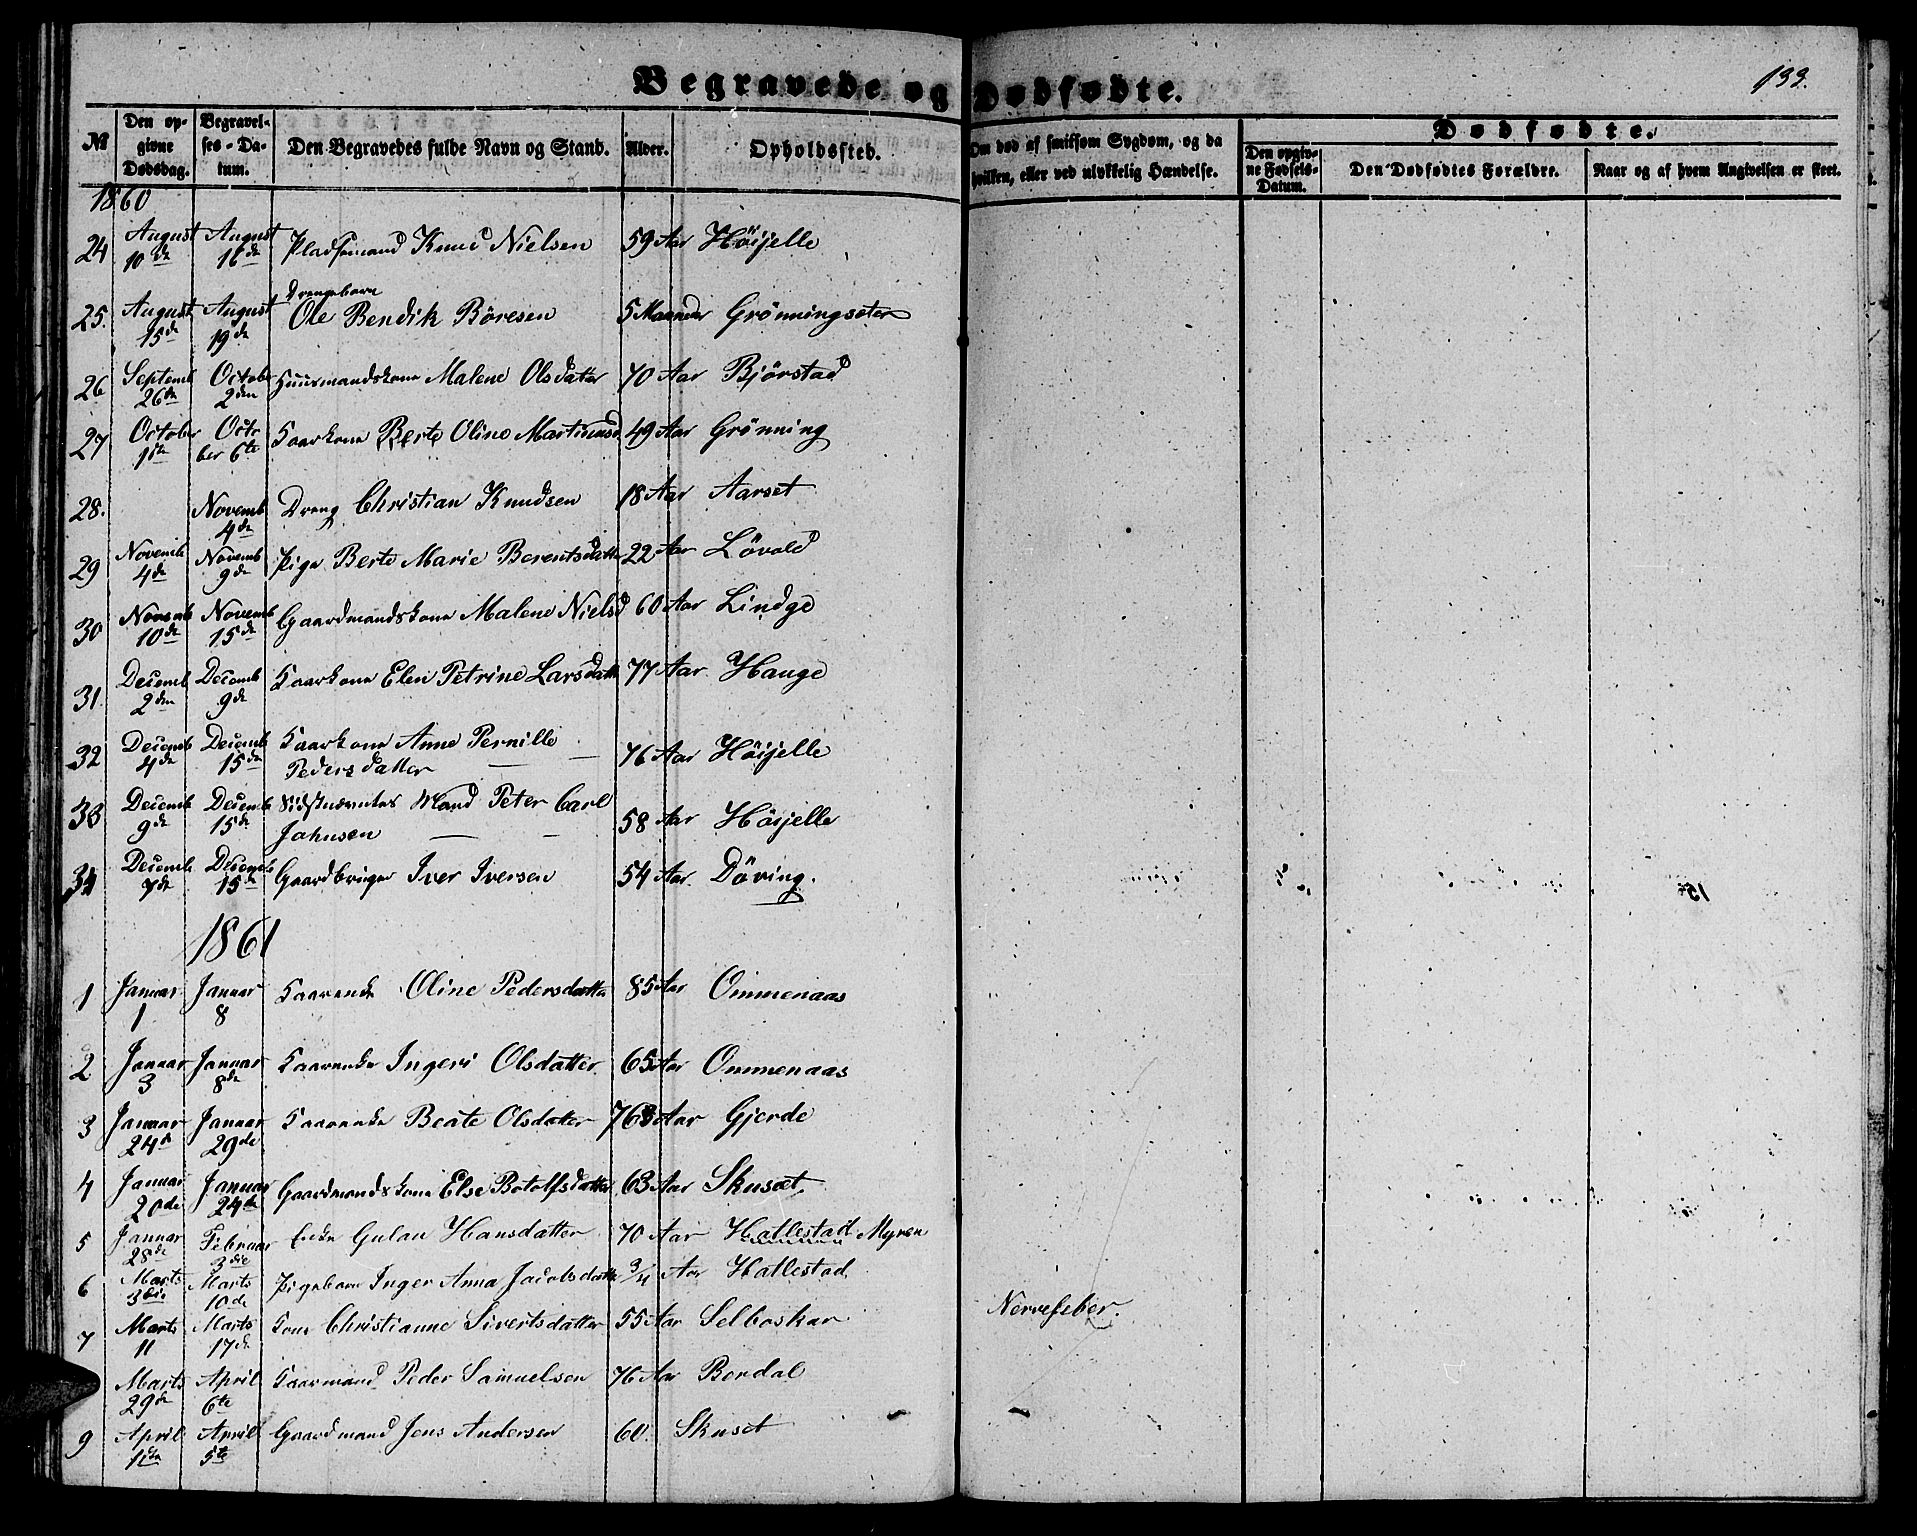 Begravede og Dødfødte.
133.
№
Den opgivne Dødsdag.
Begravelses-Datum.
Den Begravedes fulde Navn og Stand.
Alder.
Opholdssted.
Om død af smitsom Sygdom, og da hvilken, eller ved ulykkelig Hændelse.
Dødfødte.
Den opgivne Fødsels-Datum.
Den Dødfødtes Forældre.
Naar og af hvem Angivelsen er skeet.
1860
24 August 10de August 16de Pladsmand Knud Nielsen 59 Aar Höijelle
Drengebarn
25. August 15de August 19de Ole Bendik Böresen 5 Maaneder Grönningseter
26 Septemb 26de October 2den Huusmandskone Malene Olsdatter 70 Aar Bjørstad
27 October 1ste October 6te Kaarkone Berte Oline Martinusd 49 Aar Grönning
28. Novemb 4de Dreng Christian Knudsen 18 Aar Aarset
29 Novemb 4de Novemb 9de Pige Berte Marie Berentsdatter 22 Aar Lövold
30 Novemb 10de Novemb 15de Gaardmandskone Malene Nielsd 60 Aar Lindge
31 Decemb 2den Decemb 9de Kaarkone Elen Petrine Larsdatt 77 Aar Hauge
32 Decemb 4de Decemb 15de Kaarkone Anne Pernille
Pedersdatter — — 76 Aar Höijelle
33 Decemb 9de Decemb 15de Sidstnævntes Mand Peter Carl
Johnsen — — 58 Aar Höijelle
34 Decemb 7de Decemb 15de Gaardbruger Iver Iversen 54 Aar Döving.
1861
1 Januar 1 Januar 8 Kaarenke Oline Pedersdatter 85 Aar Ommenaas
2 Januar 3 Januar 8de Kaarenke Ingeri Olsdatter 65 Aar Ommenaas
3 Januar 24de Januar 29de Kaarenke Beate Olsdatter 76 Aar Gjerde
4 Januar 20de Januar 24de Gaardmandskone Else Botolfsdatter 63 Aar Skuset
5 Januar 28de Februar 3die Enke Gulau Hansdatter 70 Aar Hatlestad Myren
6 Marts 3die Marts 10de Pigebarn Inger Anna Jacobsdatte 3/4 Aar Hatlestad
7 Marts 11 Marts 17de Kone Christianne Sivertsdatter 55 Aar Selboskar Nervefeber.
Marts 29de April 6te Kaarmand Peder Samuelsen 76 Aar Bordal
9 April 1ste April 5te Gaardmand Jens Andersen 60. Skuset